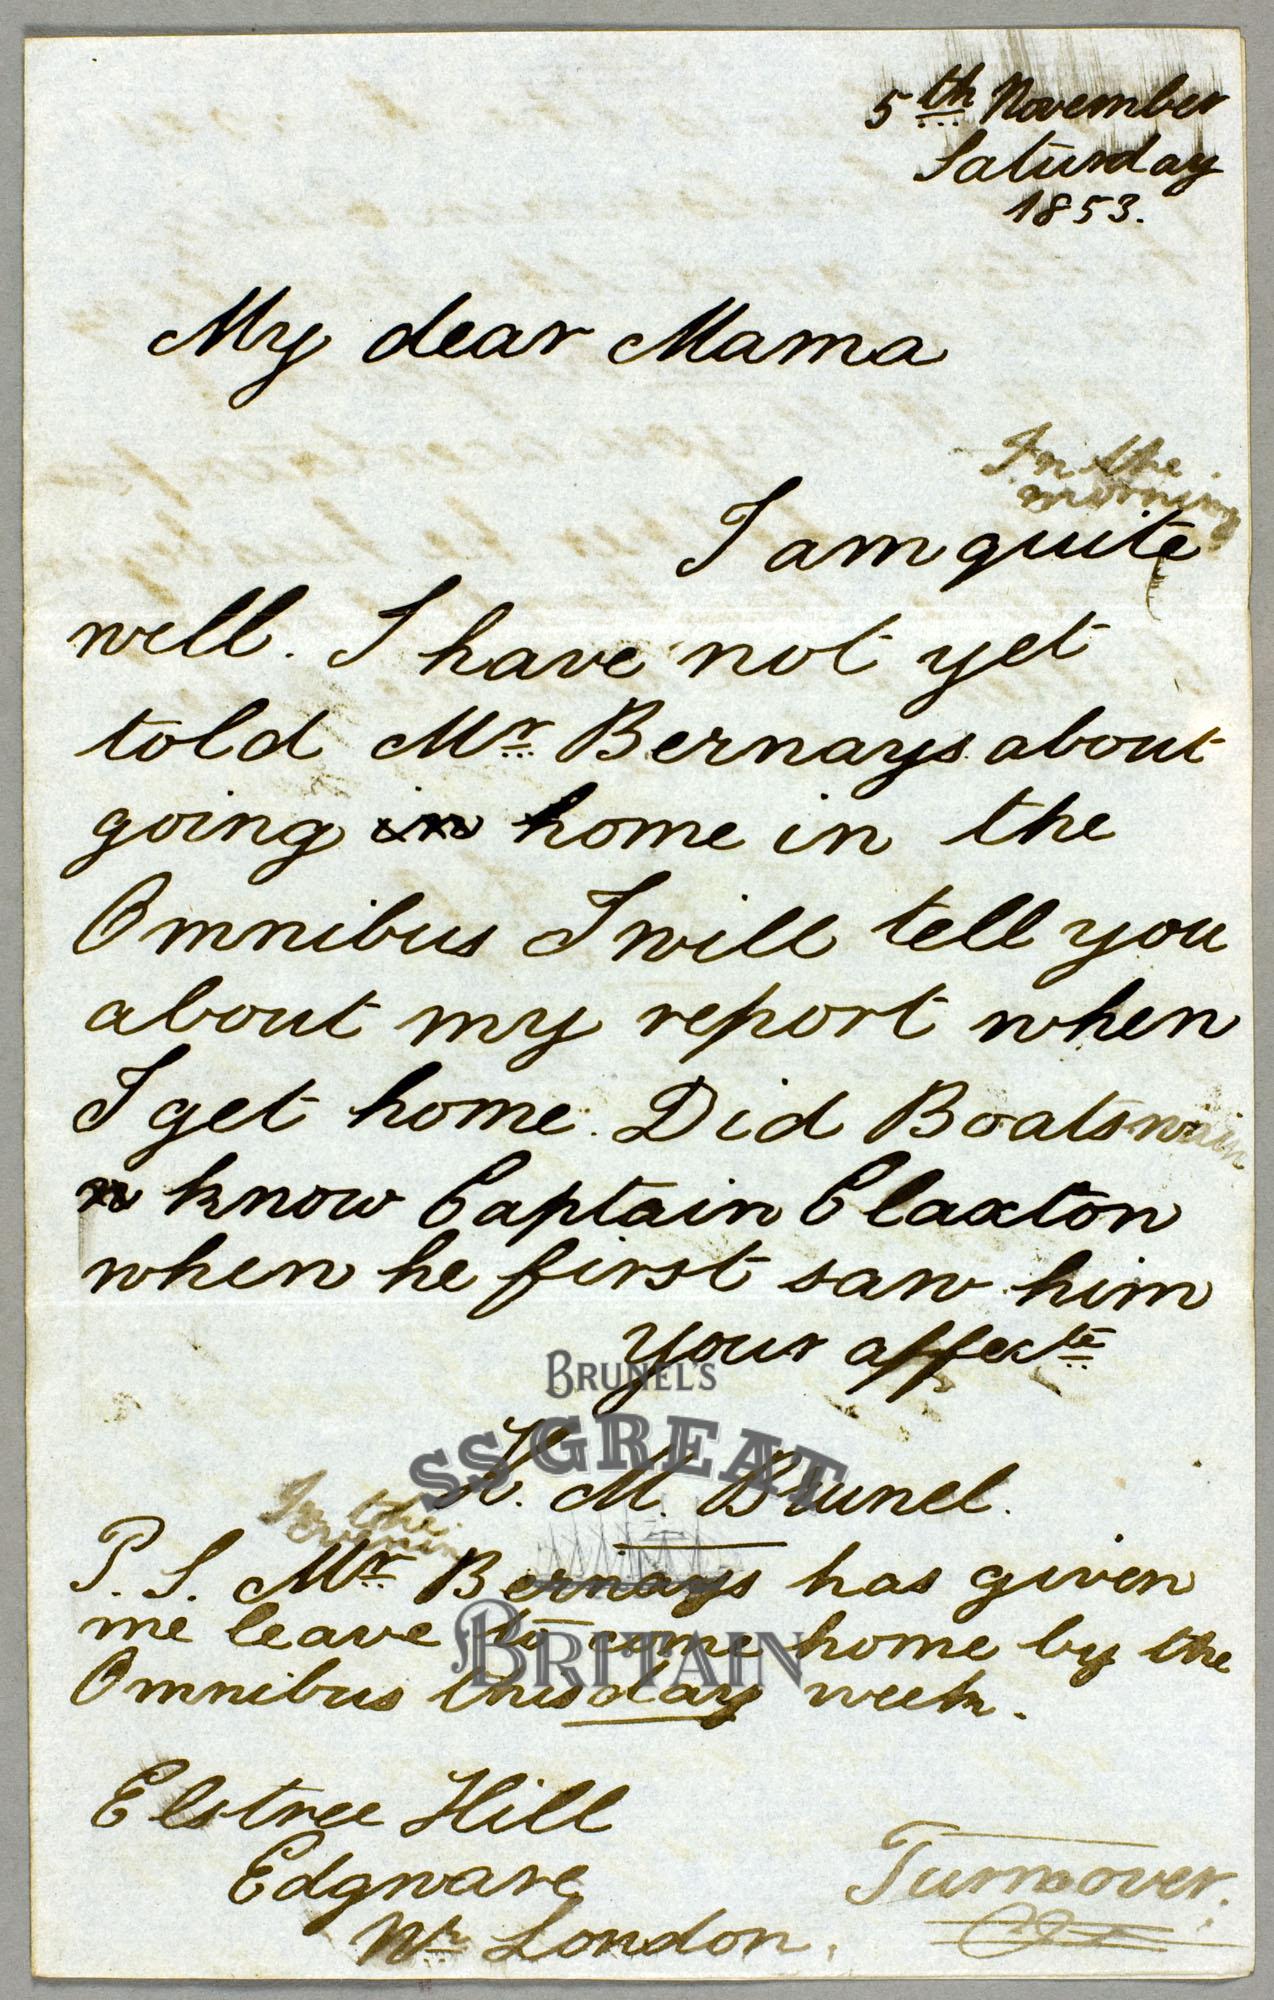 5th November
Saturday
1853.
My dear Mama
In the
morning
I am quite
well. I have not yet
told Mr Bernays about
going in home in the
Omnibus I will tell you
about my report when
I get home. Did Boatswain
know Captain Claxton
when he first saw him
Your affecte
H. M. Brunel.
In the
evening
P. S. Mr Bernays has given
me leave to come home by the
Omnibus this day week.
Elstree Hill
Edgware
Nr London.
Turn over.
BRUNEL'S
SS GREAT
BRITAIN